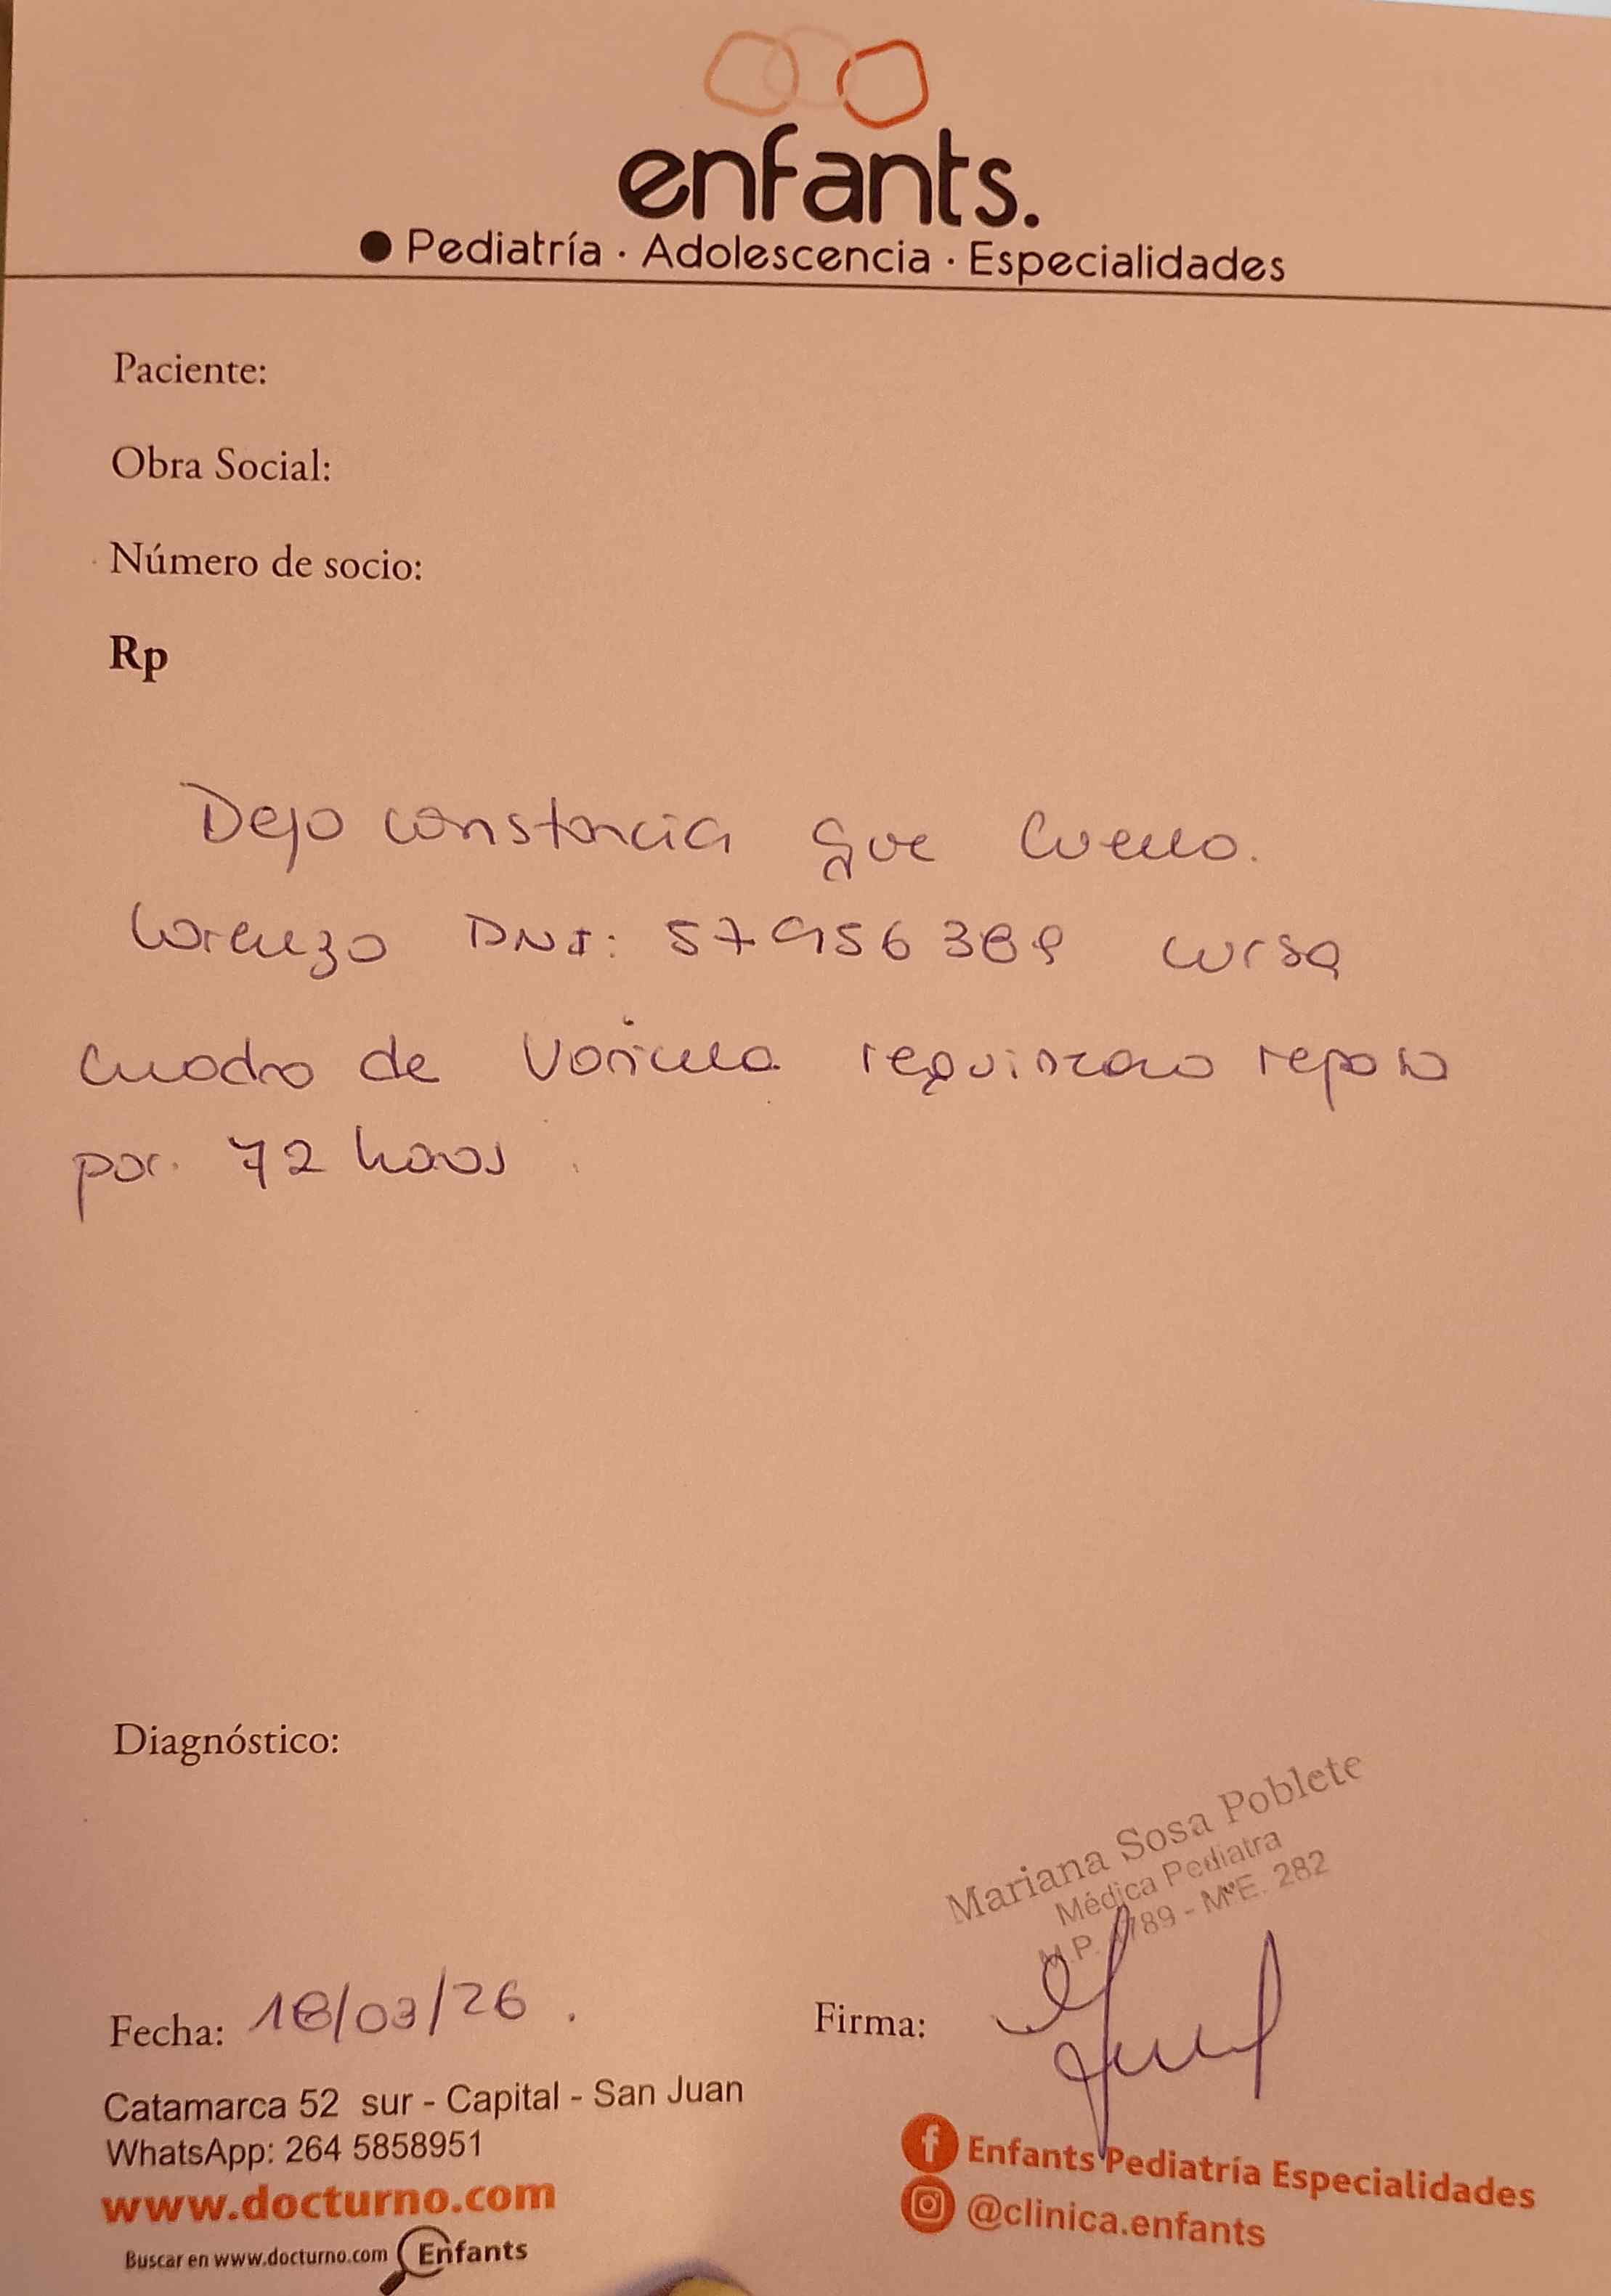 enfants.
Pediatría · Adolescencia · Especialidades
Paciente:
Obra Social:
Número de socio:
Rp
Dejo constancia que Cuello.
Lorenzo DNI: 57956389 cursa
cuadro de Varicela requiriendo reposo
por 72 horas
Diagnóstico:
Mariana Sosa Poblete
Médica Pediatra
M.P. 789 - M.E. 282
Fecha: 18/03/26.
Firma:
Catamarca 52 sur - Capital - San Juan
WhatsApp: 264 5858951
www.docturno.com
Buscar en www.docturno.com Enfants
Enfants Pediatría Especialidades
@clinica.enfants